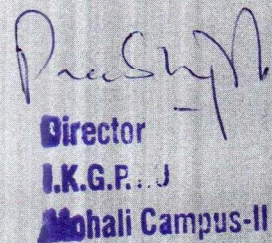 Director
I.K.G.P.. J
Mohali Campus-II